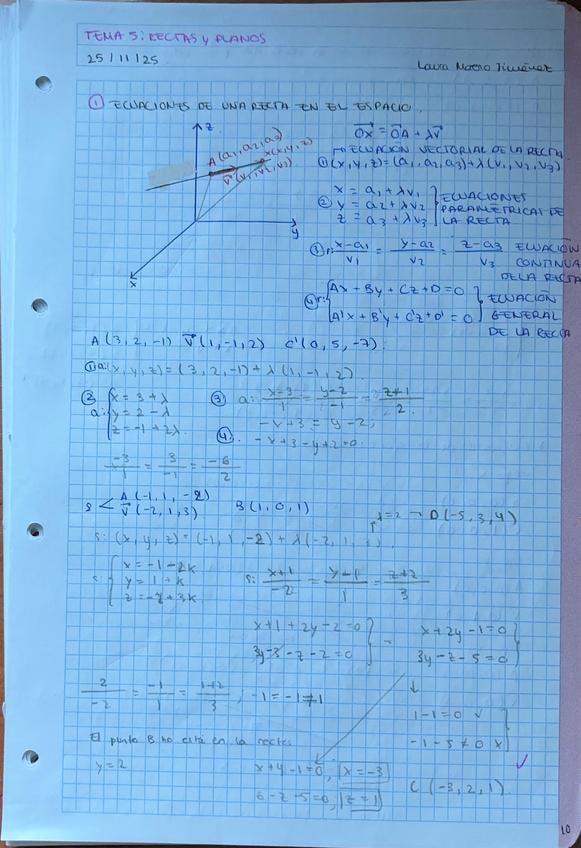 TEMA 5: RECTAS Y PLANOS
25/11/25
Laura
① ECUACIONES DE UNA RECTA EN EL ESPACIO.
z
A(a₁,a₂,a₃)
X(x,y,z)
V⃗(v₁,v₂,v₃)
y
x
OX⃗ = OA⃗ + λV⃗
ECUACIÓN VECTORIAL DE LA RECTA
① (x,y,z)=(a₁,a₂,a₃)+λ(v₁,v₂,v₃)
② x = a₁+λv₁
y = a₂+λv₂
z = a₃+λv₃
ECUACIONES PARAMÉTRICAS DE LA RECTA
③ r: (x-a₁)/v₁ = (y-a₂)/v₂ = (z-a₃)/v₃ ECUACIÓN CONTINUA DE LA RECTA
④ r: Ax+By+Cz+D=0
A'x+B'y+C'z+D'=0
ECUACIÓN GENERAL DE LA RECTA
A(3,2,-1) V⃗(1,-1,2) C'(0,5,-7)
① a: (x,y,z)=(3,2,-1)+λ(1,-1,2)
② a: x=3+λ
y=2-λ
z=-1+2λ
③ a: (x-3)/1 = (y-2)/-1 = (z+1)/2
-x+3=y-2
④ -x+3-y+2=0
-3/1 = 3/-1 = -6/2
s < A(-1,1,-2)
V⃗(-2,1,3)
B(1,0,1)
λ=2 → D(-5,3,4)
s: (x,y,z)=(-1,1,-2)+λ(-2,1,3)
s: x=-1-2k
y=1+k
z=-2+3k
s: (x+1)/-2 = (y-1)/1 = (z+2)/3
x+1+2y-2=0
3y-3-z-2=0
x+2y-1=0
3y-z-5=0
2/-2 = -1/1 = (1+2)/3, -1=-1≠1
1-1=0 ✓
-1-5≠0 x
El punto B no está en la recta.
y=2
x+4-1=0, x=-3
6-z-5=0, z=1
C(-3,2,1).
10